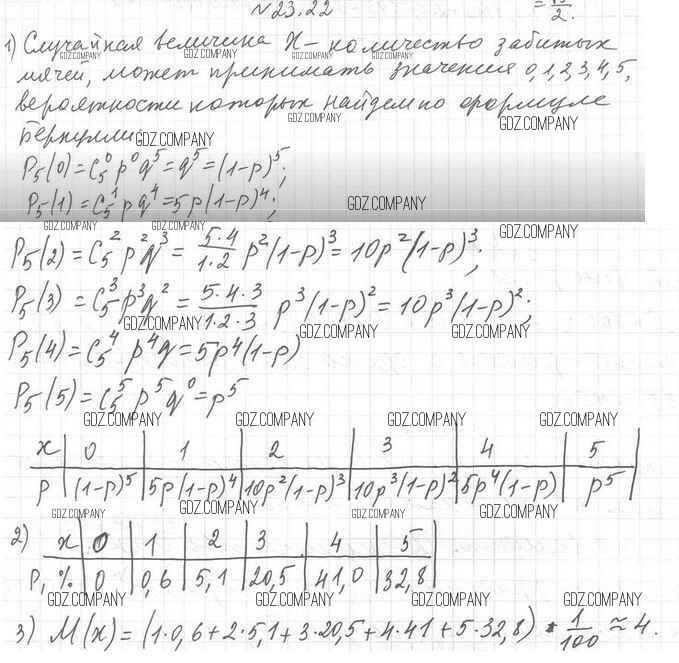 №23.22
= 15/2.
1) Случайная величина X – количество забитых
мячей, может принимать значения 0,1,2,3,4,5,
вероятности которых найдем по формуле
Бернулли
P₅(0)=C₅⁰p⁰q⁵=q⁵=(1-p)⁵;
P₅(1)=C₅¹pq⁴=5p(1-p)⁴;
P₅(2)=C₅²p²q³= 5·4/1·2 p²(1-p)³=10p²(1-p)³;
P₅(3)=C₅³p³q²= 5·4·3/1·2·3 p³(1-p)²=10p³(1-p)²;
P₅(4)=C₅⁴p⁴q=5p⁴(1-p)
P₅(5)=C₅⁵p⁵q⁰=p⁵
x | 0 | 1 | 2 | 3 | 4 | 5
p | (1-p)⁵ | 5p(1-p)⁴ | 10p²(1-p)³ | 10p³(1-p)² | 5p⁴(1-p) | p⁵
2) x | 0 | 1 | 2 | 3 | 4 | 5
P, % | 0 | 0,6 | 5,1 | 20,5 | 41,0 | 32,8
3) M(x)=(1·0,6+2·5,1+3·20,5+4·41+5·32,8)·1/100≈4.
GDZ.COMPANY